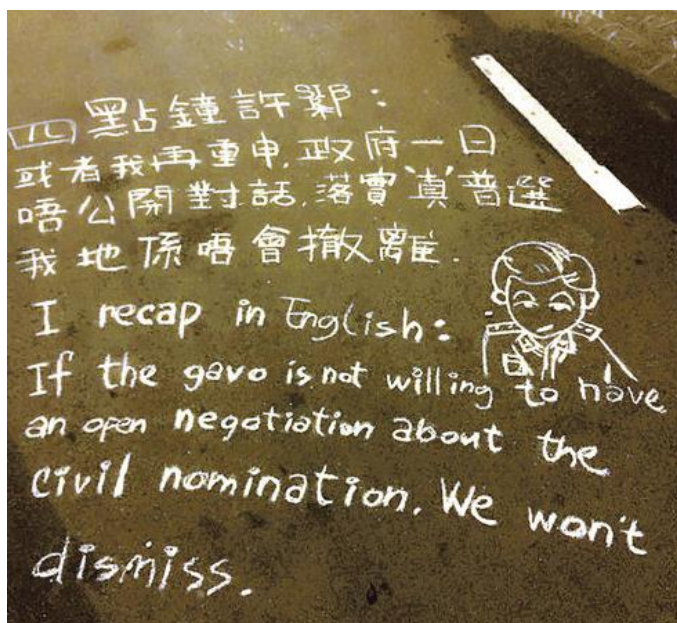 四點鐘許鄴：
或者我再重申,政府一日
唔公開對話,落實'真'普選
我地係唔會撤離.
I recap in English:
If the gavo is not willing to have
an open negotiation about the
civil nomination. We won't
dismiss.